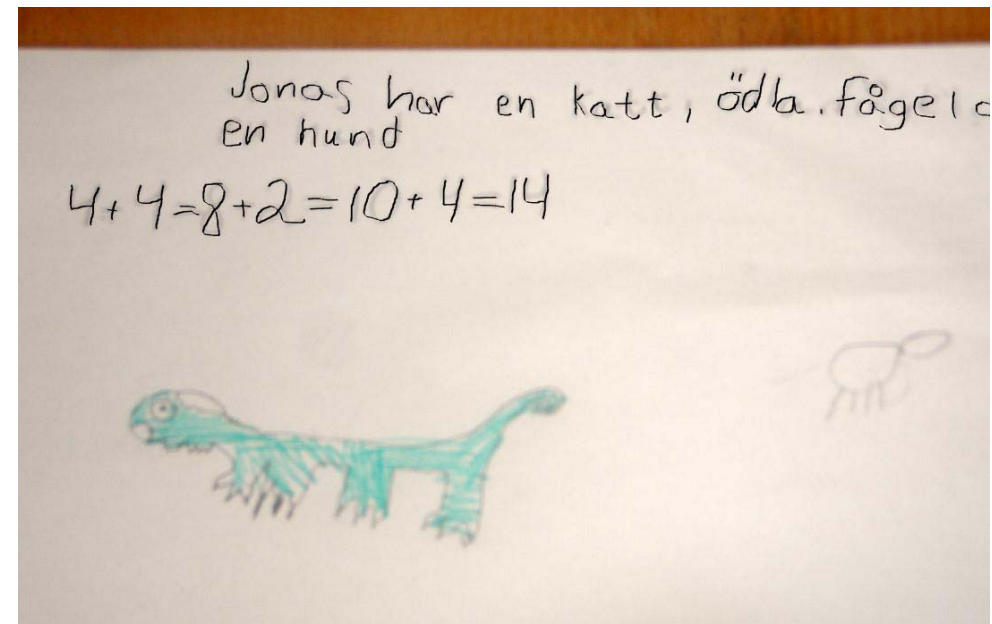 Jonas har en katt, ödla. fågel
en hund
4+4=8+2=10+4=14